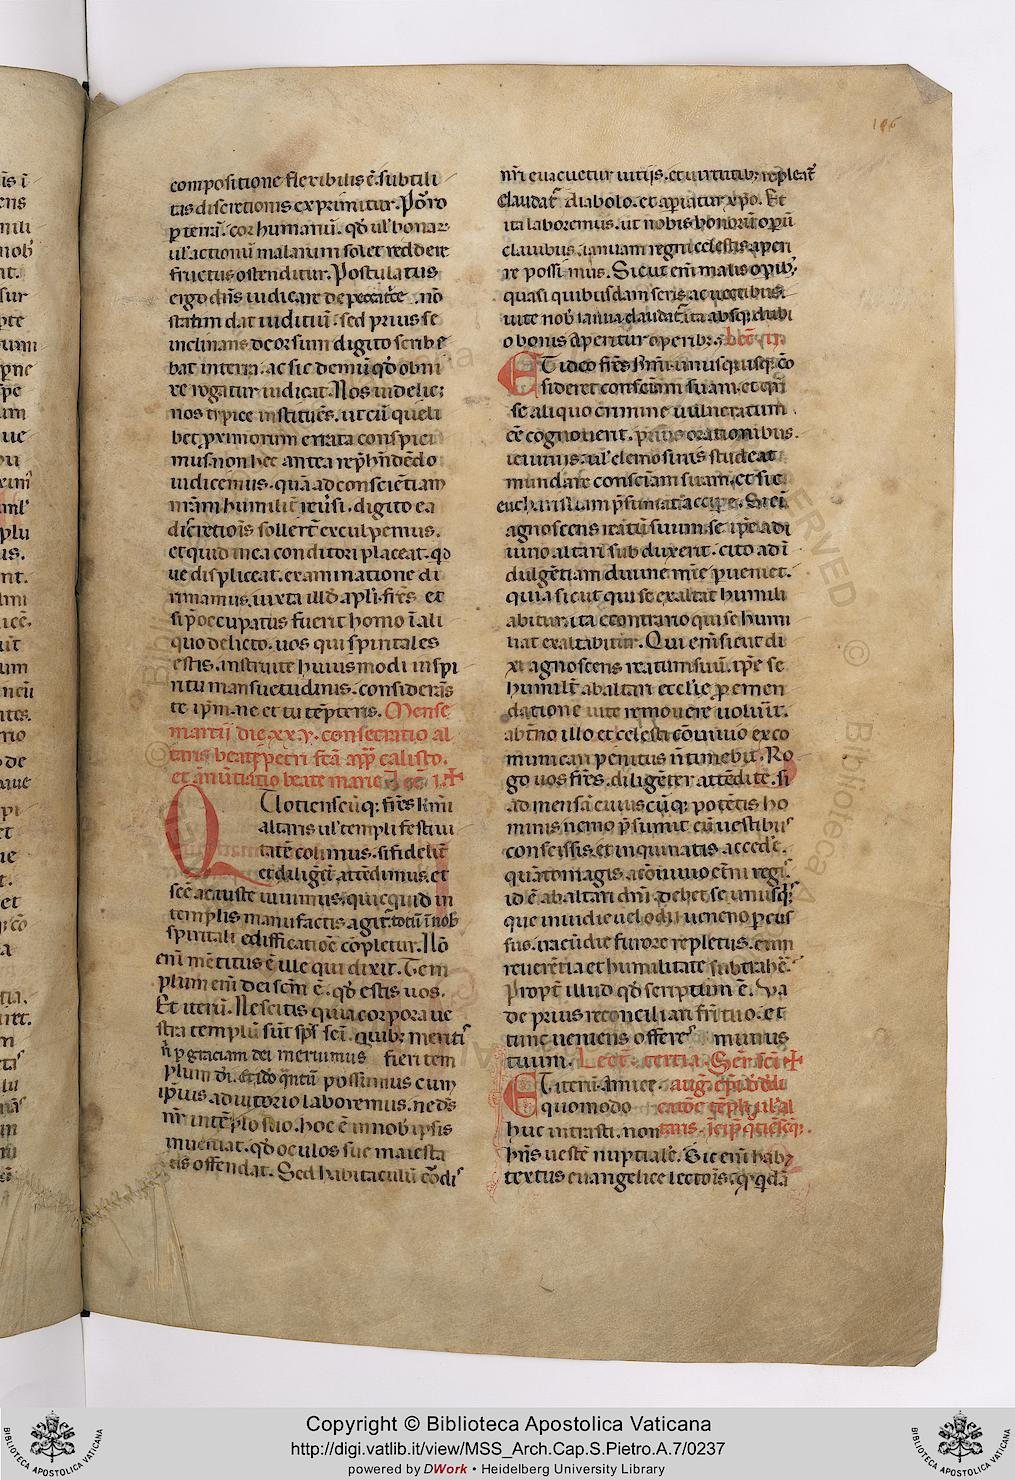 compositione flexibilis ē. subtili
tas discretionis exprimitur. Porro
p terrā. cor humanū. qđ ul' bonaꝝ
ul' actionū malarum solet reddere
fructus ostenditur. Postulatus
ergo dn̄s iudicare de peccatrice. nō
statim dat iuditiū. sed prius se
inclinans deorsum digito scribe
bat in terra. ac sic demū qđ obni
xe rogatur iudicat. Nos uidelicꝫ
nos typice instituēs. ut cū queli
bet. proximorum errata conspici
mus. non hec antea rep̄hēdēdo
iudicemus. quā ad conscientiam
nrām humilit reuersi. digito ea
discretiois sollert̄ exculpemus.
et quid in ea conditori placeat. qđ
ue displiceat. examinatione di
rimamus. iuxta illđ apli. fr̄s et
si p̄occupatus fuerit homo ī ali
quo delicto. uos qui spiritales
estis. instruite huius modi in spi
ritu mansuetudinis. considerās
te ip̄m. ne et tu tēpteris. Mense
martii die xxv. consecratio al
taris beati petri fcā a pp̄ calisto.
et ānūtiatio beate marie
Quotienscūqꝫ fr̄es krm̄i
altaris ul' templi festiui
tatē colimus. si fidelit̄
et diligēt̄ attēdimus. et
scē ac iuste uiuimus. quicquid in
templis manufactis agit̄. totū ī nob
spiritali edifficatiōe cōpletur. Nō
eni mētitus ē ille qui dixit. Tem
plum eni dei scm̄ ē. qđ estis uos.
Et iterū. Nescitis quia corpora ue
stra templū sūt sp̄s sci. quibꝫ meriti
n̄ p graciam dei meruimus fieri tem
plum di. et īdo qntū possimus cum
ipsius adiutorio laboremus. ne dn̄s
nr̄ in tēplo suo. hoc ē in nob ipsis
inueniat. qđ oculos sue maiesta
tis offendat. Sed habitaculū cordis
nr̄i euacuetur uitijs. et uirtutibꝫ repleat̄
Claudat̄ diabolo. et apiatur xpo. Et
ita laboremus. ut nobis bonorū opū
clauibus. ianuam regni celestis aperi
re possimus. Sicut eni malis opibꝫ
quasi quibusdam seris. ac uectibus
uite nob ianua claudat̄. ita absqꝫ dubi
o bonis aperitur operibꝫ.
Et ideo fr̄es krm̄i. unusquisqꝫ cō
sideret conscīam suam. et qn̄
se aliquo crimine uulneratum
eē cognouerit. prius orationibus.
ieiuniis. ul' elemosinis studeat
mundare consciam suam. et sic
eucharistiam p̄sumat accipe. Si eī
agnoscens reatū suum. se ip̄e adi
uino altari subduxerit. cito ad ī
dulgētiam diuine mie pueniet.
quia sicut qui se exaltat humili
abitur. ita econtrario qui se humi
liat exaltabitur. Qui eni sicut di
xi agnoscens reatum suū. ipe se
humilit̄ ab altari ecclie p emen
datione uite remouere uoluīt.
ab et̄no illo et celesti cōuiuio exco
municari penitus n̄ timebit. Ro
go uos fr̄es. diligēter attēdite. si
ad mensā cuiuscūqꝫ potētis ho
minis nemo p̄sumit cū uestibus
conscissis. et inquinatis accede.
quātomagis. a cōuiuio et̄ni regis
id ē ab altari dn̄i debet se unusqꝫ
que inuidie uel odii ueneno p cus
sus. iracūdie furore repletus. cum
reuerētia et humilitate subtrahe.
Propt̄ illud qđ scriptum ē. Va
de prius reconciliari fri tuo. et
tunc ueniens offeres munus
tuum. Lect̄. tertia. Ser̄ sci
Et iterū. Amice aug. epi
quomodo
huc intrasti. non
hn̄s uestē nuptialē. Sic eni habꝫ
textus euangelice lectōis.
Copyright © Biblioteca Apostolica Vaticana
http://digi.vatlib.it/view/MSS_Arch.Cap.S.Pietro.A.7/0237
powered by DWork • Heidelberg University Library
BIBLIOTECA APOSTOLICA VATICANA
BIBLIOTECA APOSTOLICA VATICANA